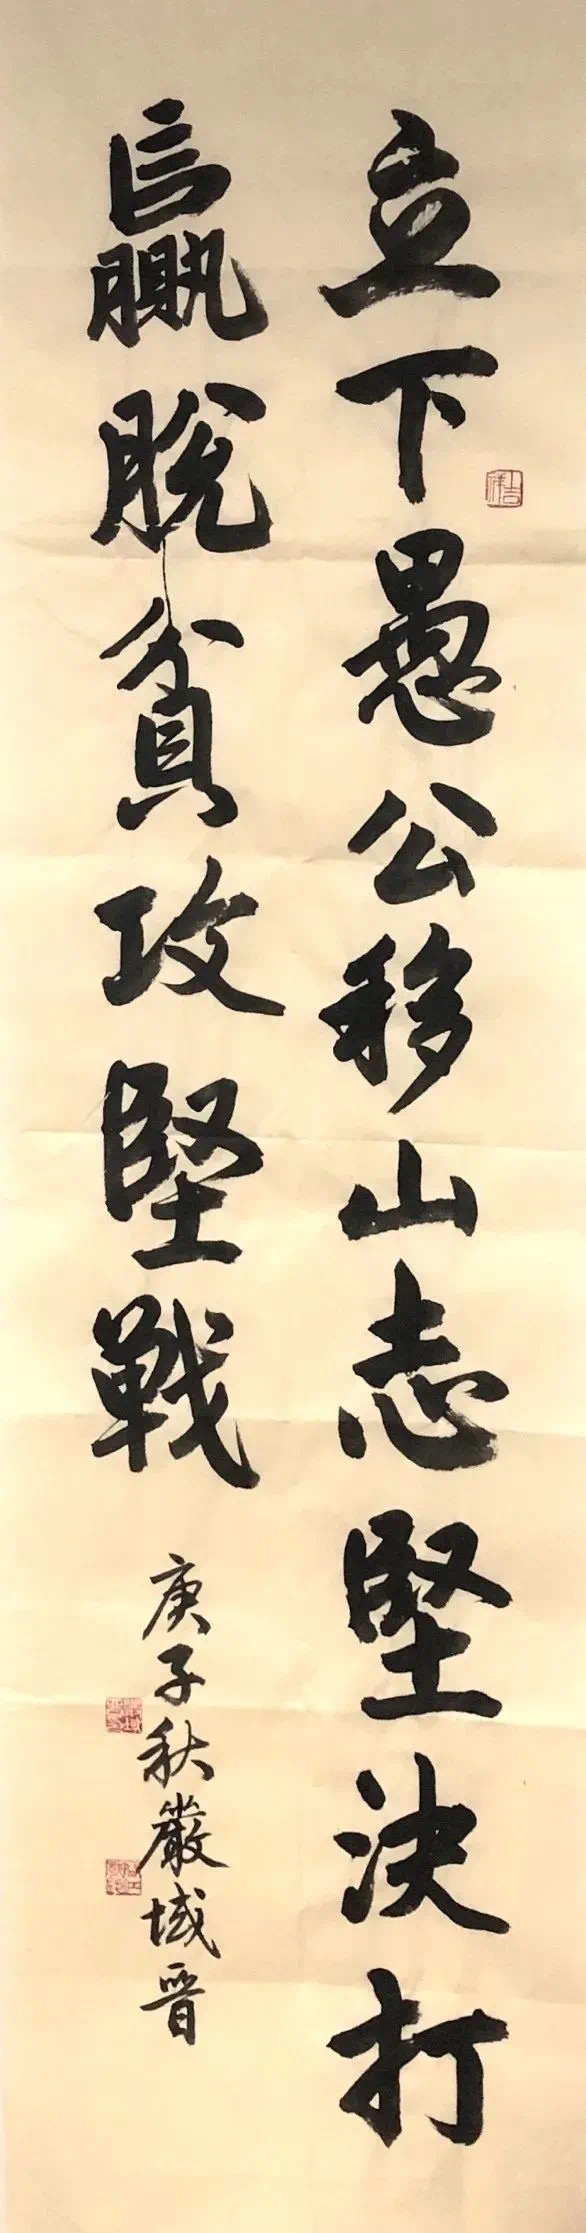 立下愚公移山志堅決打
贏脫貧攻堅戰
庚子秋嚴域晉